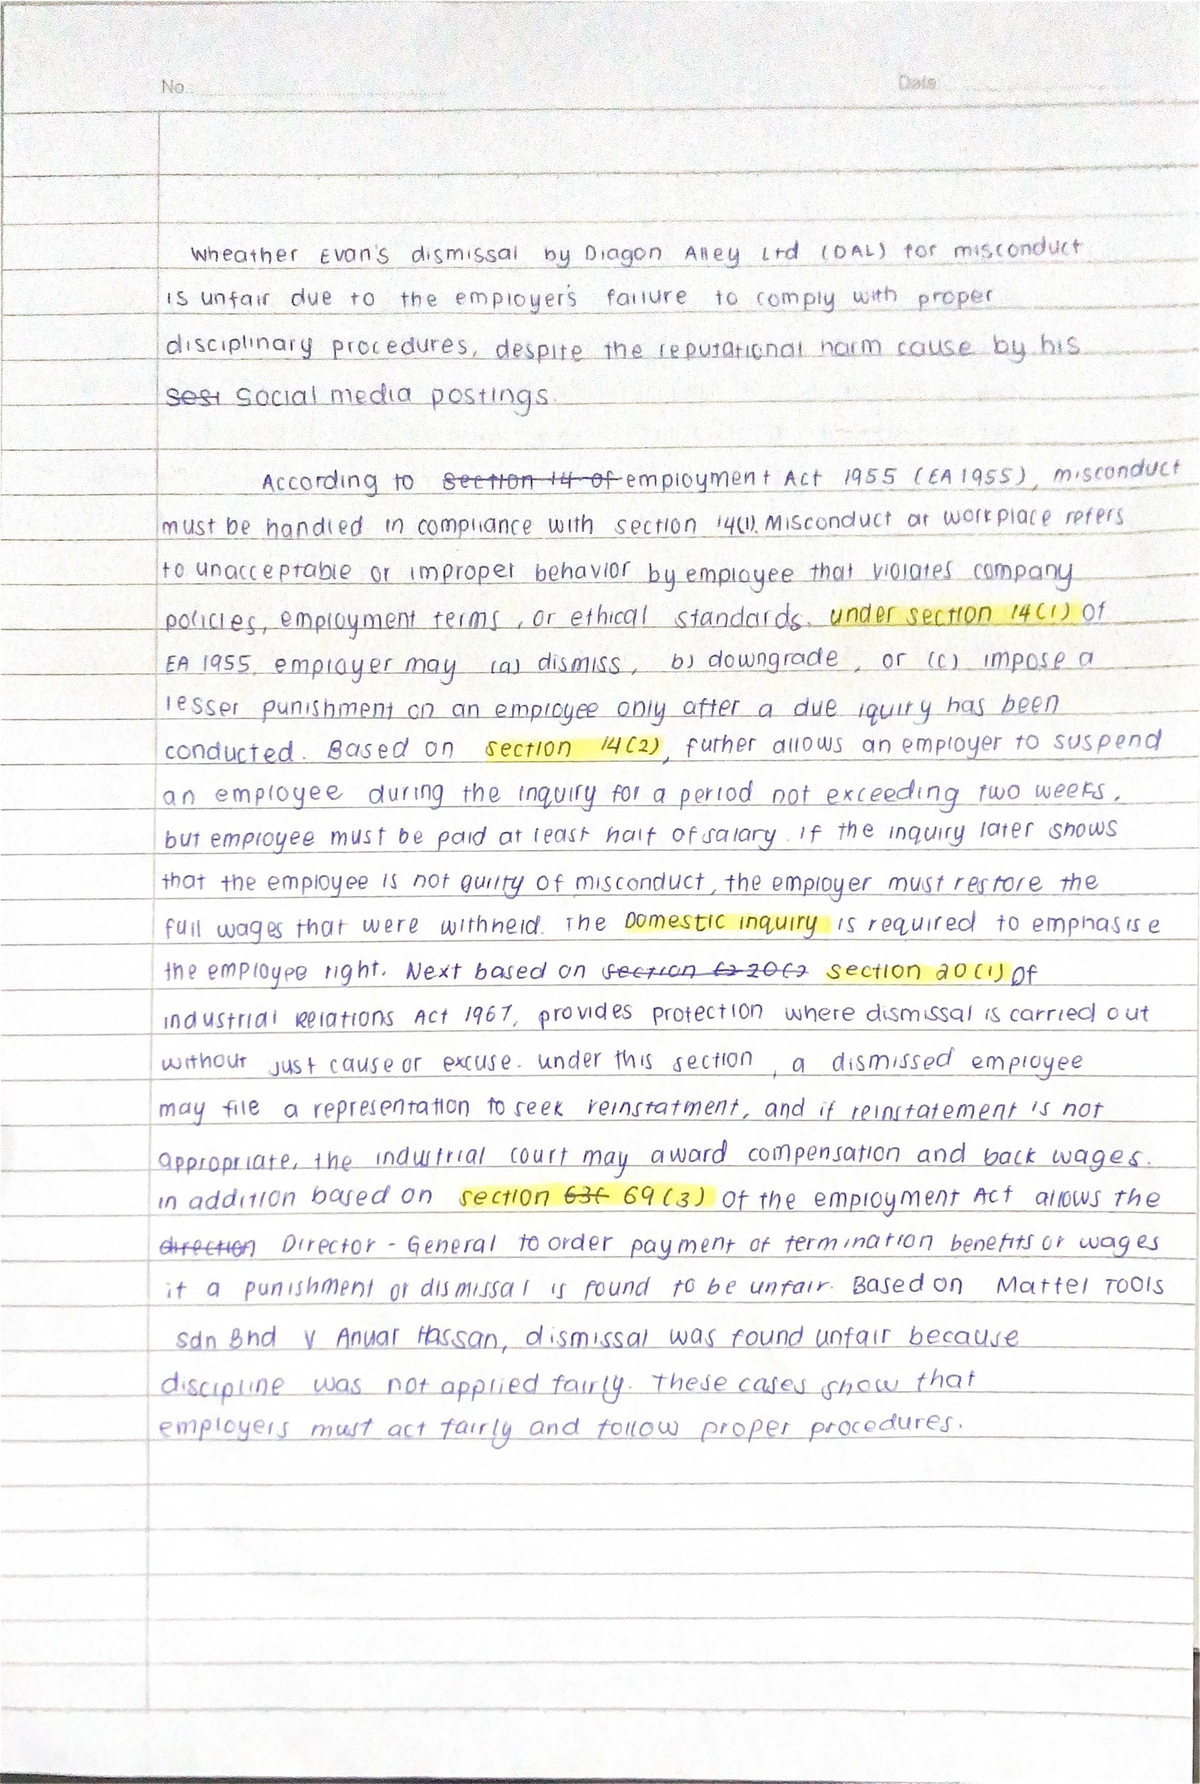 No.:
Date
Wheather Evan's dismissal by Diagon Alley Ltd (DAL) for misconduct
is unfair due to the employer's failure to comply with proper
disciplinary procedures, despite the reputational harm cause by his
~~sosi~~ social media postings.
According to ~~section 14 of~~ employment Act 1955 (EA 1955), misconduct
must be handled in compliance with section 14(1). Misconduct at workplace refers
to unacceptable or improper behavior by employee that violates company
policies, employment terms, or ethical standards. under section 14(1) of
EA 1955, employer may (a) dismiss, b) downgrade, or (c) impose a
lesser punishment on an employee only after a due iquiry has been
conducted. Based on section 14(2), futher allows an employer to suspend
an employee during the inquiry for a period not exceeding two weeks,
but employee must be paid at least half of salary. if the inquiry later shows
that the employee is not guilty of misconduct, the employer must restore the
full wages that were withheld. The Domestic inquiry is required to emphasise
the employee right. Next based on ~~section 20(~~ section 20(1) of
industrial Relations Act 1967, provides protection where dismissal is carried out
without just cause or excuse. under this section, a dismissed employee
may file a representation to seek reinstatment, and if reinstatement is not
appropriate, the industrial court may award compensation and back wages.
in addition based on section ~~63(~~ 69(3) of the employment Act allows the
~~direction~~ Director - General to order payment of termination benefits or wages
if a punishment or dismissal is found to be unfair. Based on Mattel Tools
Sdn Bhd v Anuar Hassan, dismissal was found unfair because
discipline was not applied fairly. These cases show that
employers must act fairly and follow proper procedures.